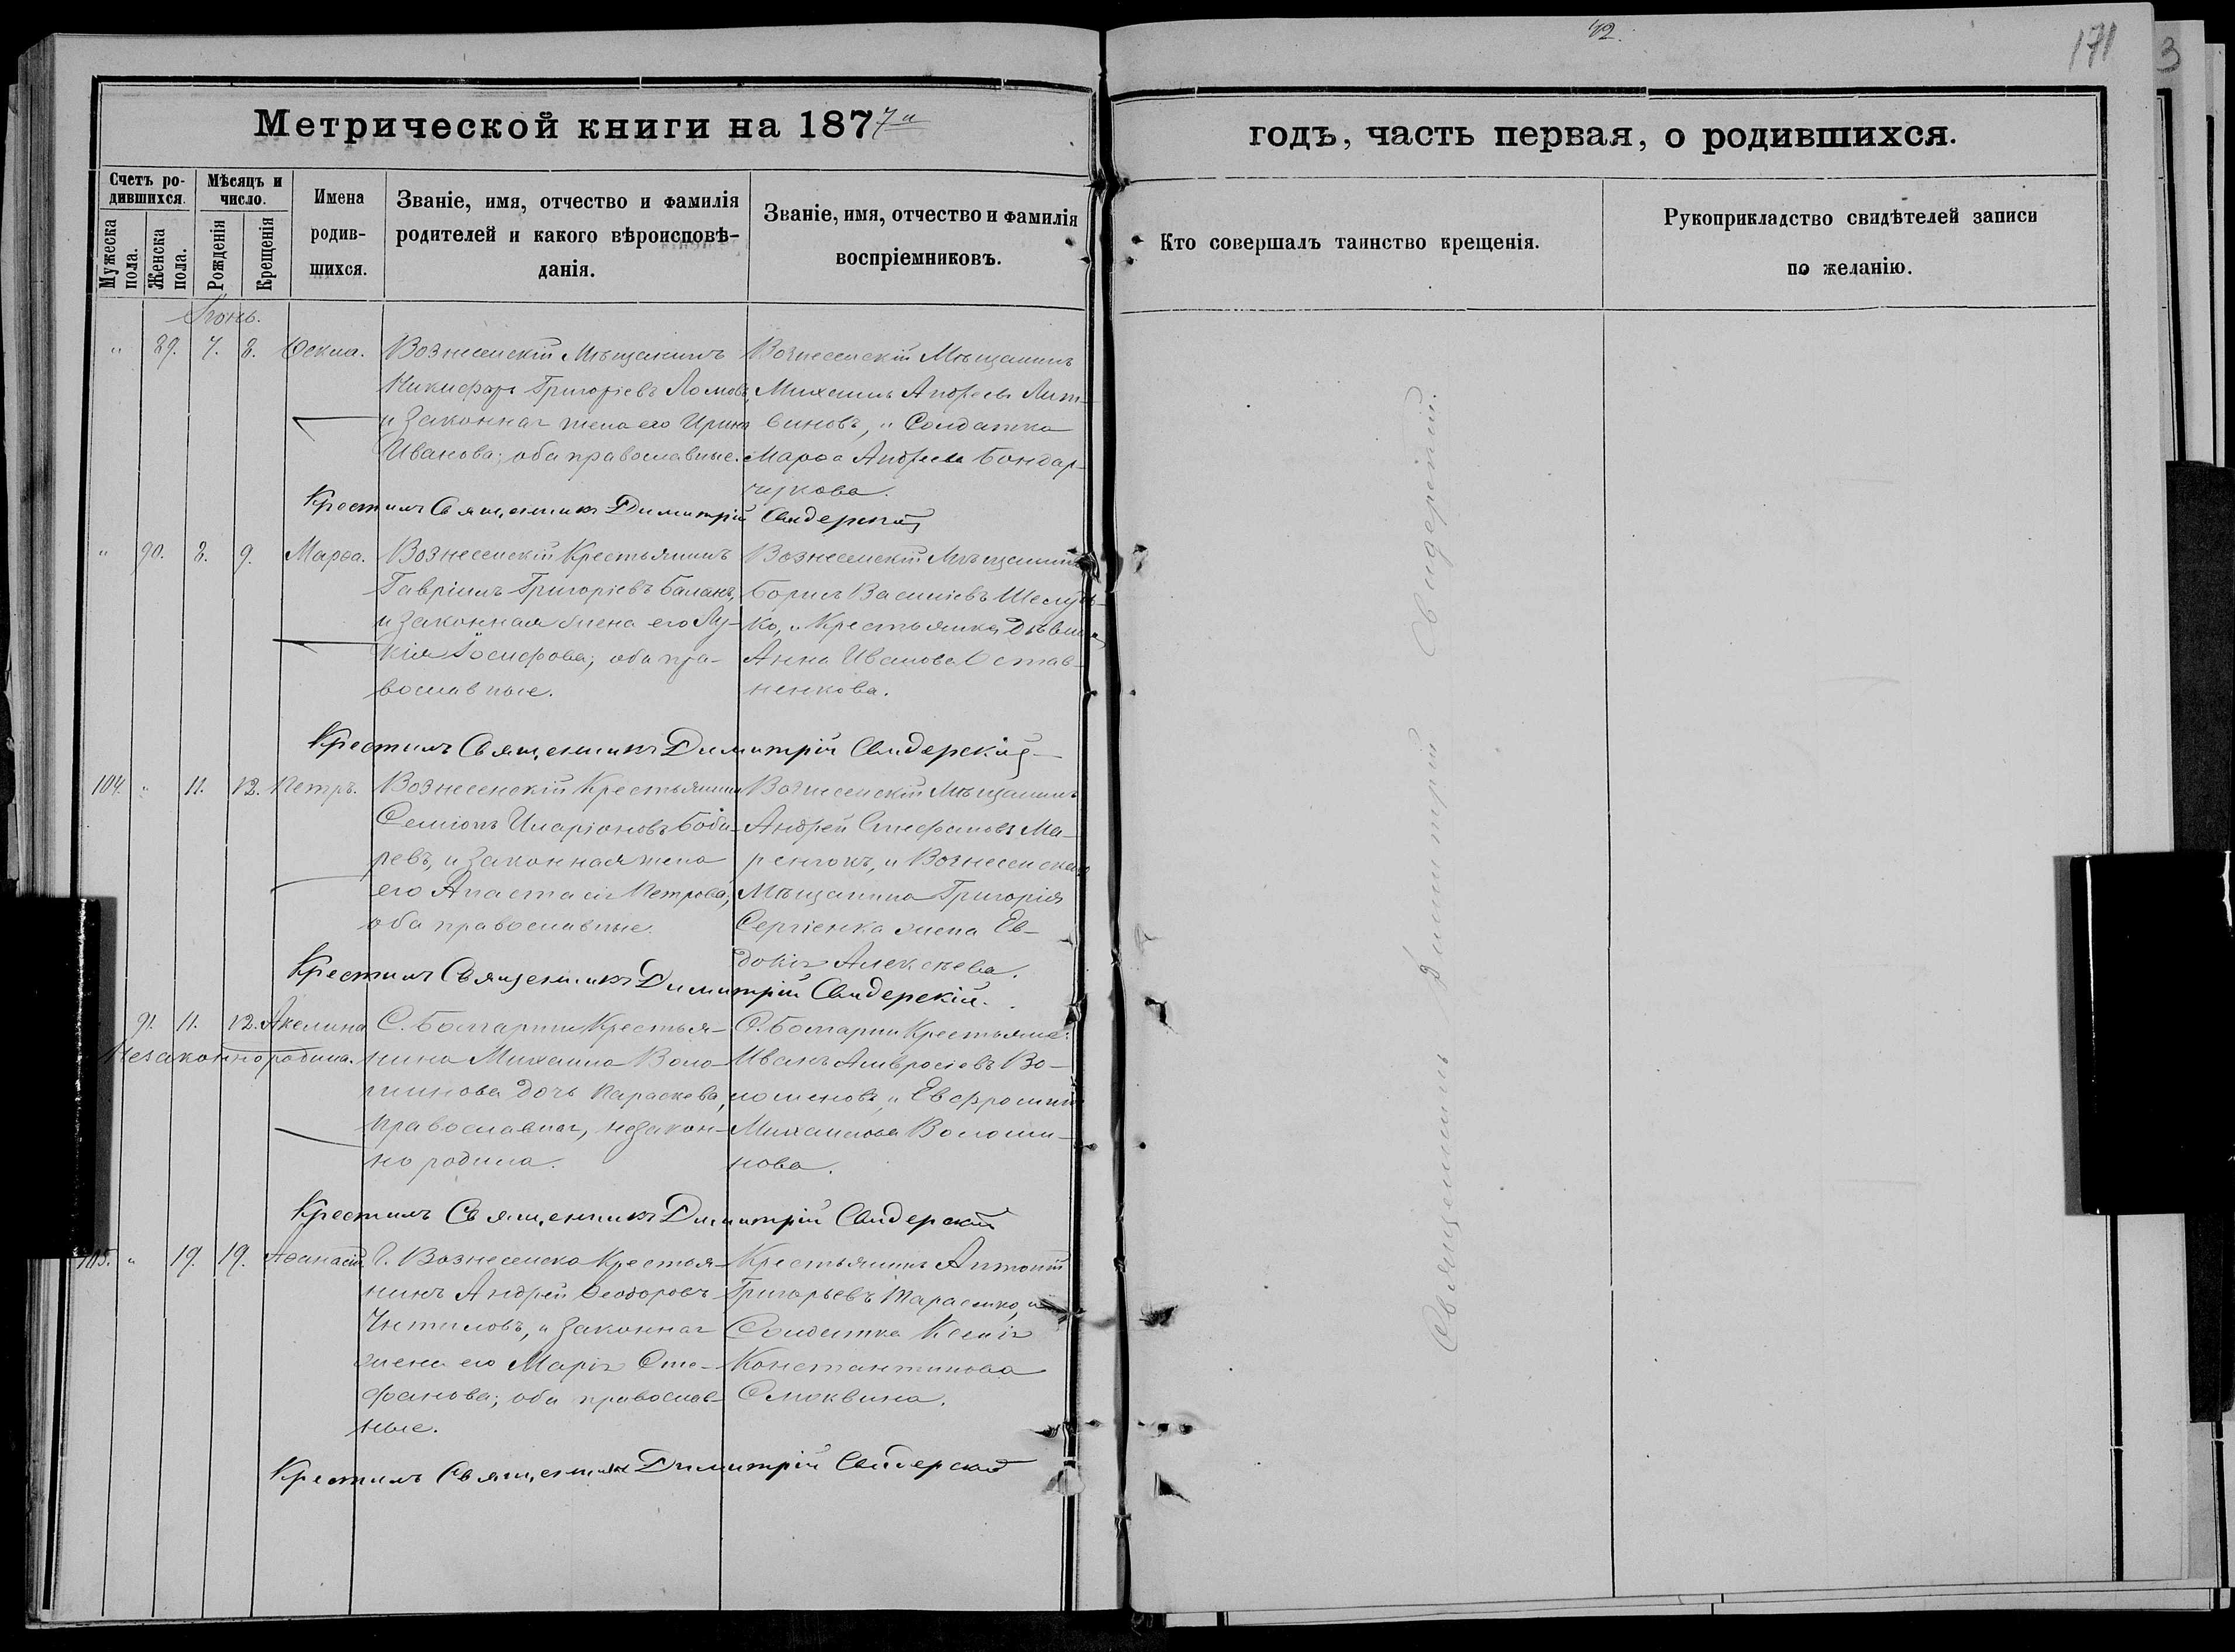 42.
171
3
Метрической книги на 1877й
годъ, часть первая, о родившихся.
Счетъ ро-
дившихся.
Мужеска пола.
Женска пола.
Мѣсяцъ и число.
Рожденія
Крещенія
Имена
родив-
шихся.
Званіе, имя, отчество и фамилія
родителей и какого вѣроисповѣ-
данія.
Званіе, имя, отчество и фамилія
воспріемниковъ.
Кто совершалъ таинство крещенія.
Рукоприкладство свидѣтелей записи
по желанію.
Іюнь.
" 89. 7. 8. Ѳекла.
Вознесенскій Мѣщанинъ
Никифоръ Григоріевъ Ломовъ,
и законная жена его Ирина
Иванова; оба православные.
Вознесенскій Мѣщанинъ
Михаилъ Андреевъ Лит-
виновъ, и Солдатка
Марѳа Андреева Бондар-
чукова.
Крестилъ Священникъ Димитрій Свидерскій
" 90. 8. 9. Марѳа.
Вознесенскій Крестьянинъ
Гавріилъ Григоріевъ Баланъ,
и законная жена его Лу-
кія Іосифова; оба пра-
вославные.
Вознесенскій Мѣщанинъ
Борисъ Василіевъ
ко, и Крестьянка Дѣвица
Анна Иванова Остав-
ненкова.
Крестилъ Священникъ Димитрій Свидерскій
104. " 11. 12. Петръ.
Вознесенскій Крестьянинъ
Симіонъ Иларіоновъ Боби-
ревъ, и законная жена
его Анастасія Петрова;
оба православные.
Вознесенскій Мѣщанинъ
Андрей Стефановъ Ма-
ренокъ, и Вознесенскаго
Мѣщанина Григорія
Сергіенка жена Ев-
докія Алексѣева.
Крестилъ Священникъ Димитрій Свидерскій.
91. 11. 12. Акелина
Незаконнородина.
С. Болгарки Крестья-
нина Михаила Воло-
шинова дочь Параскева,
православная, незакон-
но родила.
С. Болгарки Крестьяне:
Иванъ Амвросіевъ Во-
лошиновъ, и Евфросинія
Михаилова Волоши-
нова.
Крестилъ Священникъ Димитрій Свидерскій
105. " 19. 19. Аѳанасій
Г. Вознесенска Крестья-
нинъ Андрей Ѳеодоровъ
и законная
жена его Марія Сте-
фанова; оба православ-
ные.
Крестьянинъ Антоній
Григорьевъ Тарасенко, и
Солдатка Ксенія
Константинова
Смоквина.
Крестилъ Священникъ Димитрій Свидерскій
Священникъ Димитрій Свидерскій.